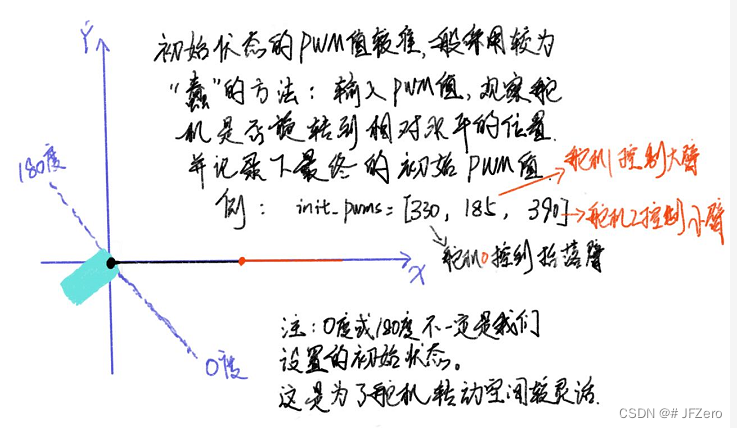 Y
初始状态的PWM值较准,一般采用较为
“蠢”的方法:输入PWM值,观察舵
机是否旋转到相对水平的位置.
并记录下最终的初始PWM值.
舵机1控制大臂
例: init_pwms=[330, 185, 390]
舵机2控制小臂
舵机0控制抬落臂
180度
X
0度
注:0度或180度不一定是我们
设置的初始状态。
这是为了舵机转动空间较灵活.
CSDN @# JFZero